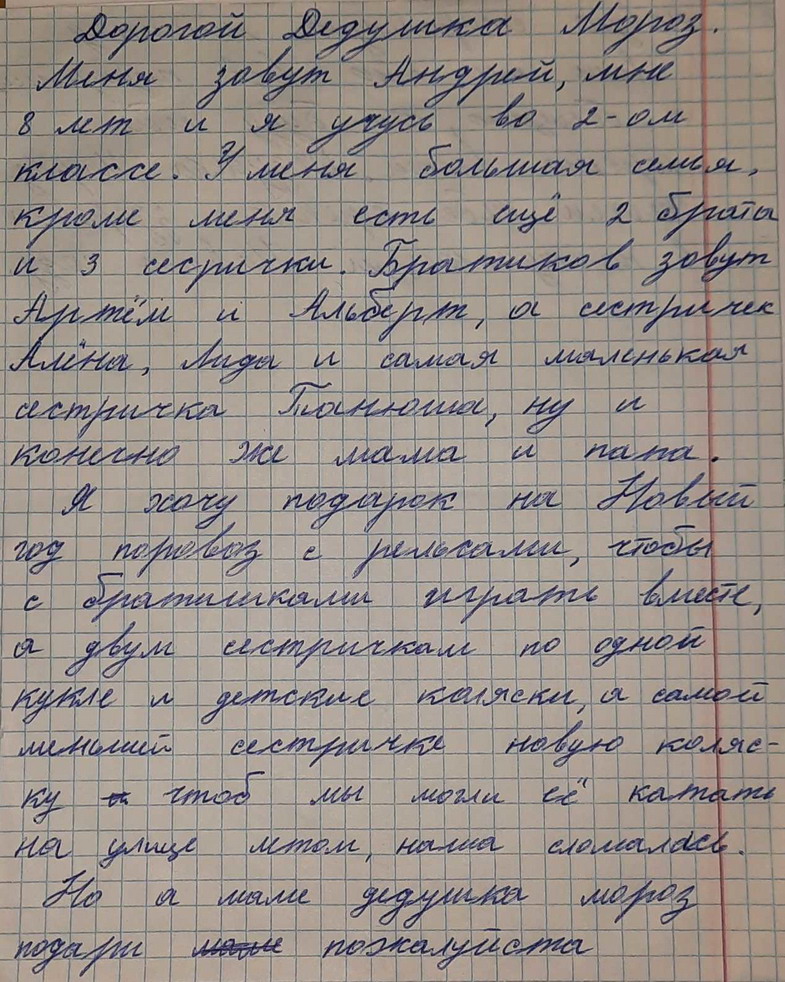 Дорогой Дедушка Мороз.
Меня зовут Андрей, мне
8 лет и я учусь во 2-ом
классе. У меня большая семья,
кроме меня есть ещё 2 браты
и 3 сесрички. Братиков зовут
Артём и Альберт, а сестричек
Алёна, Лида и самая маленькая
сестричка Танюша, ну и
конечно же мама и папа.
Я хочу подарок на Новый
год поровоз с рельсами, чтобы
с братишками играть вместе,
а двум сестричкам по одной
кукле и детские коляски, а самой
меньшей сестричке новую коляс-
ку чтоб мы могли её катать
на улице летом, наша сломалась.
Но а маме дедушка мороз
подари пожалуйста